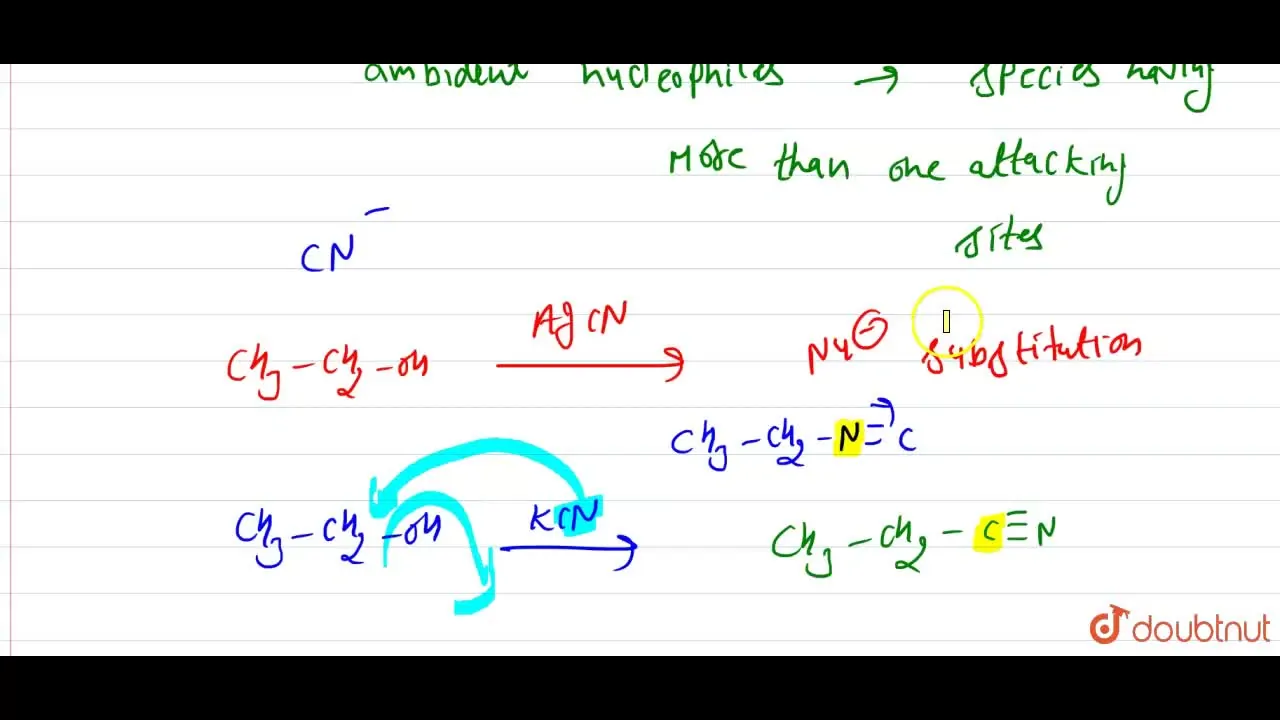 ambident nucleophiles → species having
more than one attacking
sites
CN⁻
CH₃-CH₂-OH AgCN → Nu⊖ substitution
CH₃-CH₂-N≡C
CH₃-CH₂-OH KCN → CH₃-CH₂-C≡N
doubtnut